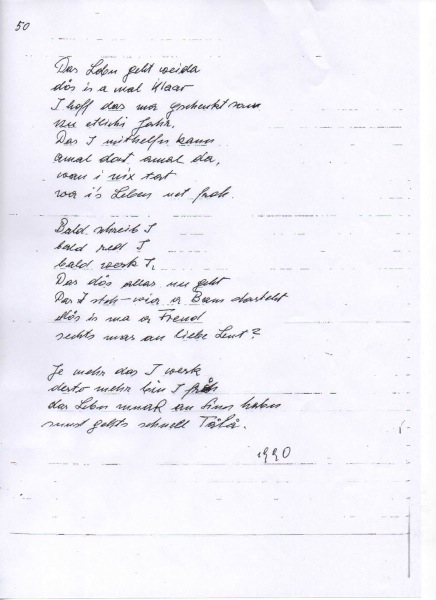 50
Das Leben geht weida
dös is a mal klaar
I hoff das mir geschenkt san
nu etlichi Jahr.
Das I mithelfn kann
amal dort amal da,
wan i nix tat
war i's Leben net froh.
Bald schreib I
bald red I
bald werk I,
Das dös allas nu geht
Das I steh-wia a Bam dasteht
dös is ma a Freud
sechts mas an liebe Leut?
Je mehr das I werk
desto mehr bin I froh
das Leben muak an Sinn habn
sunst gehts schnell
1990